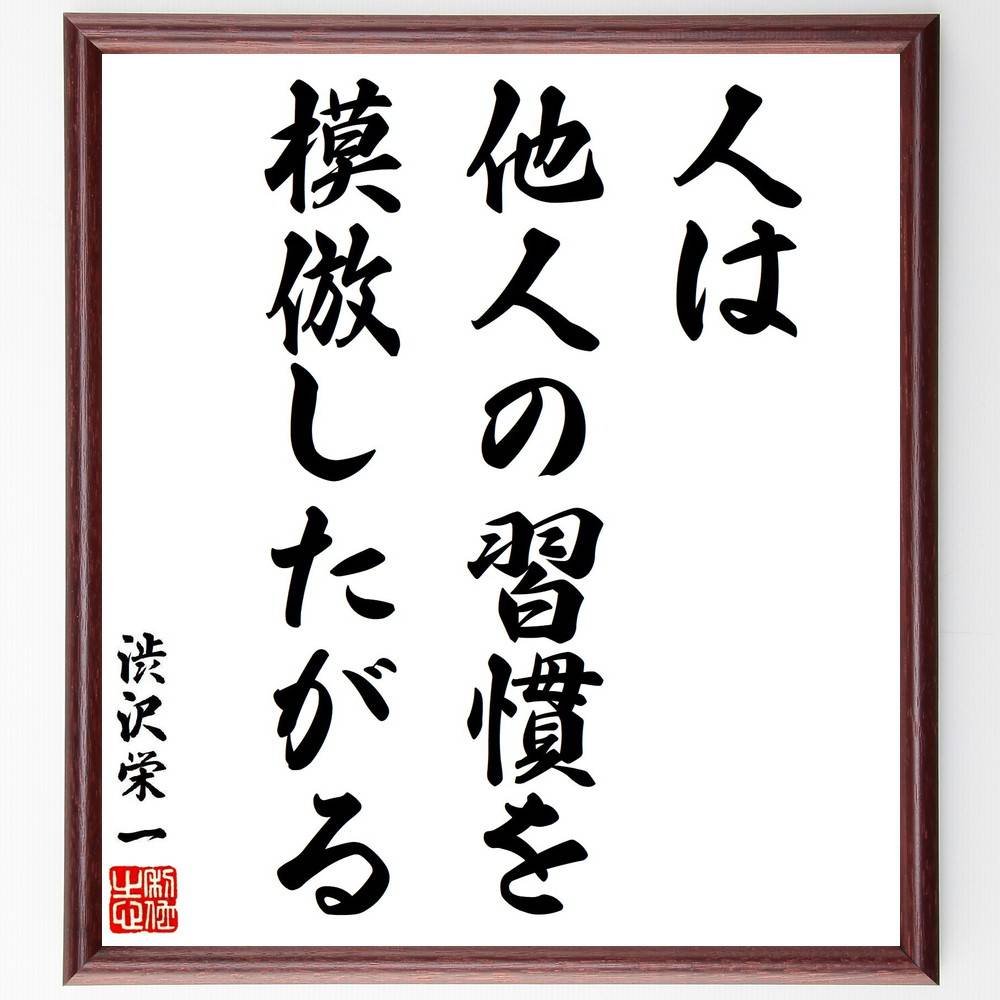 人は
他人の習慣を
模倣したがる
渋沢栄一